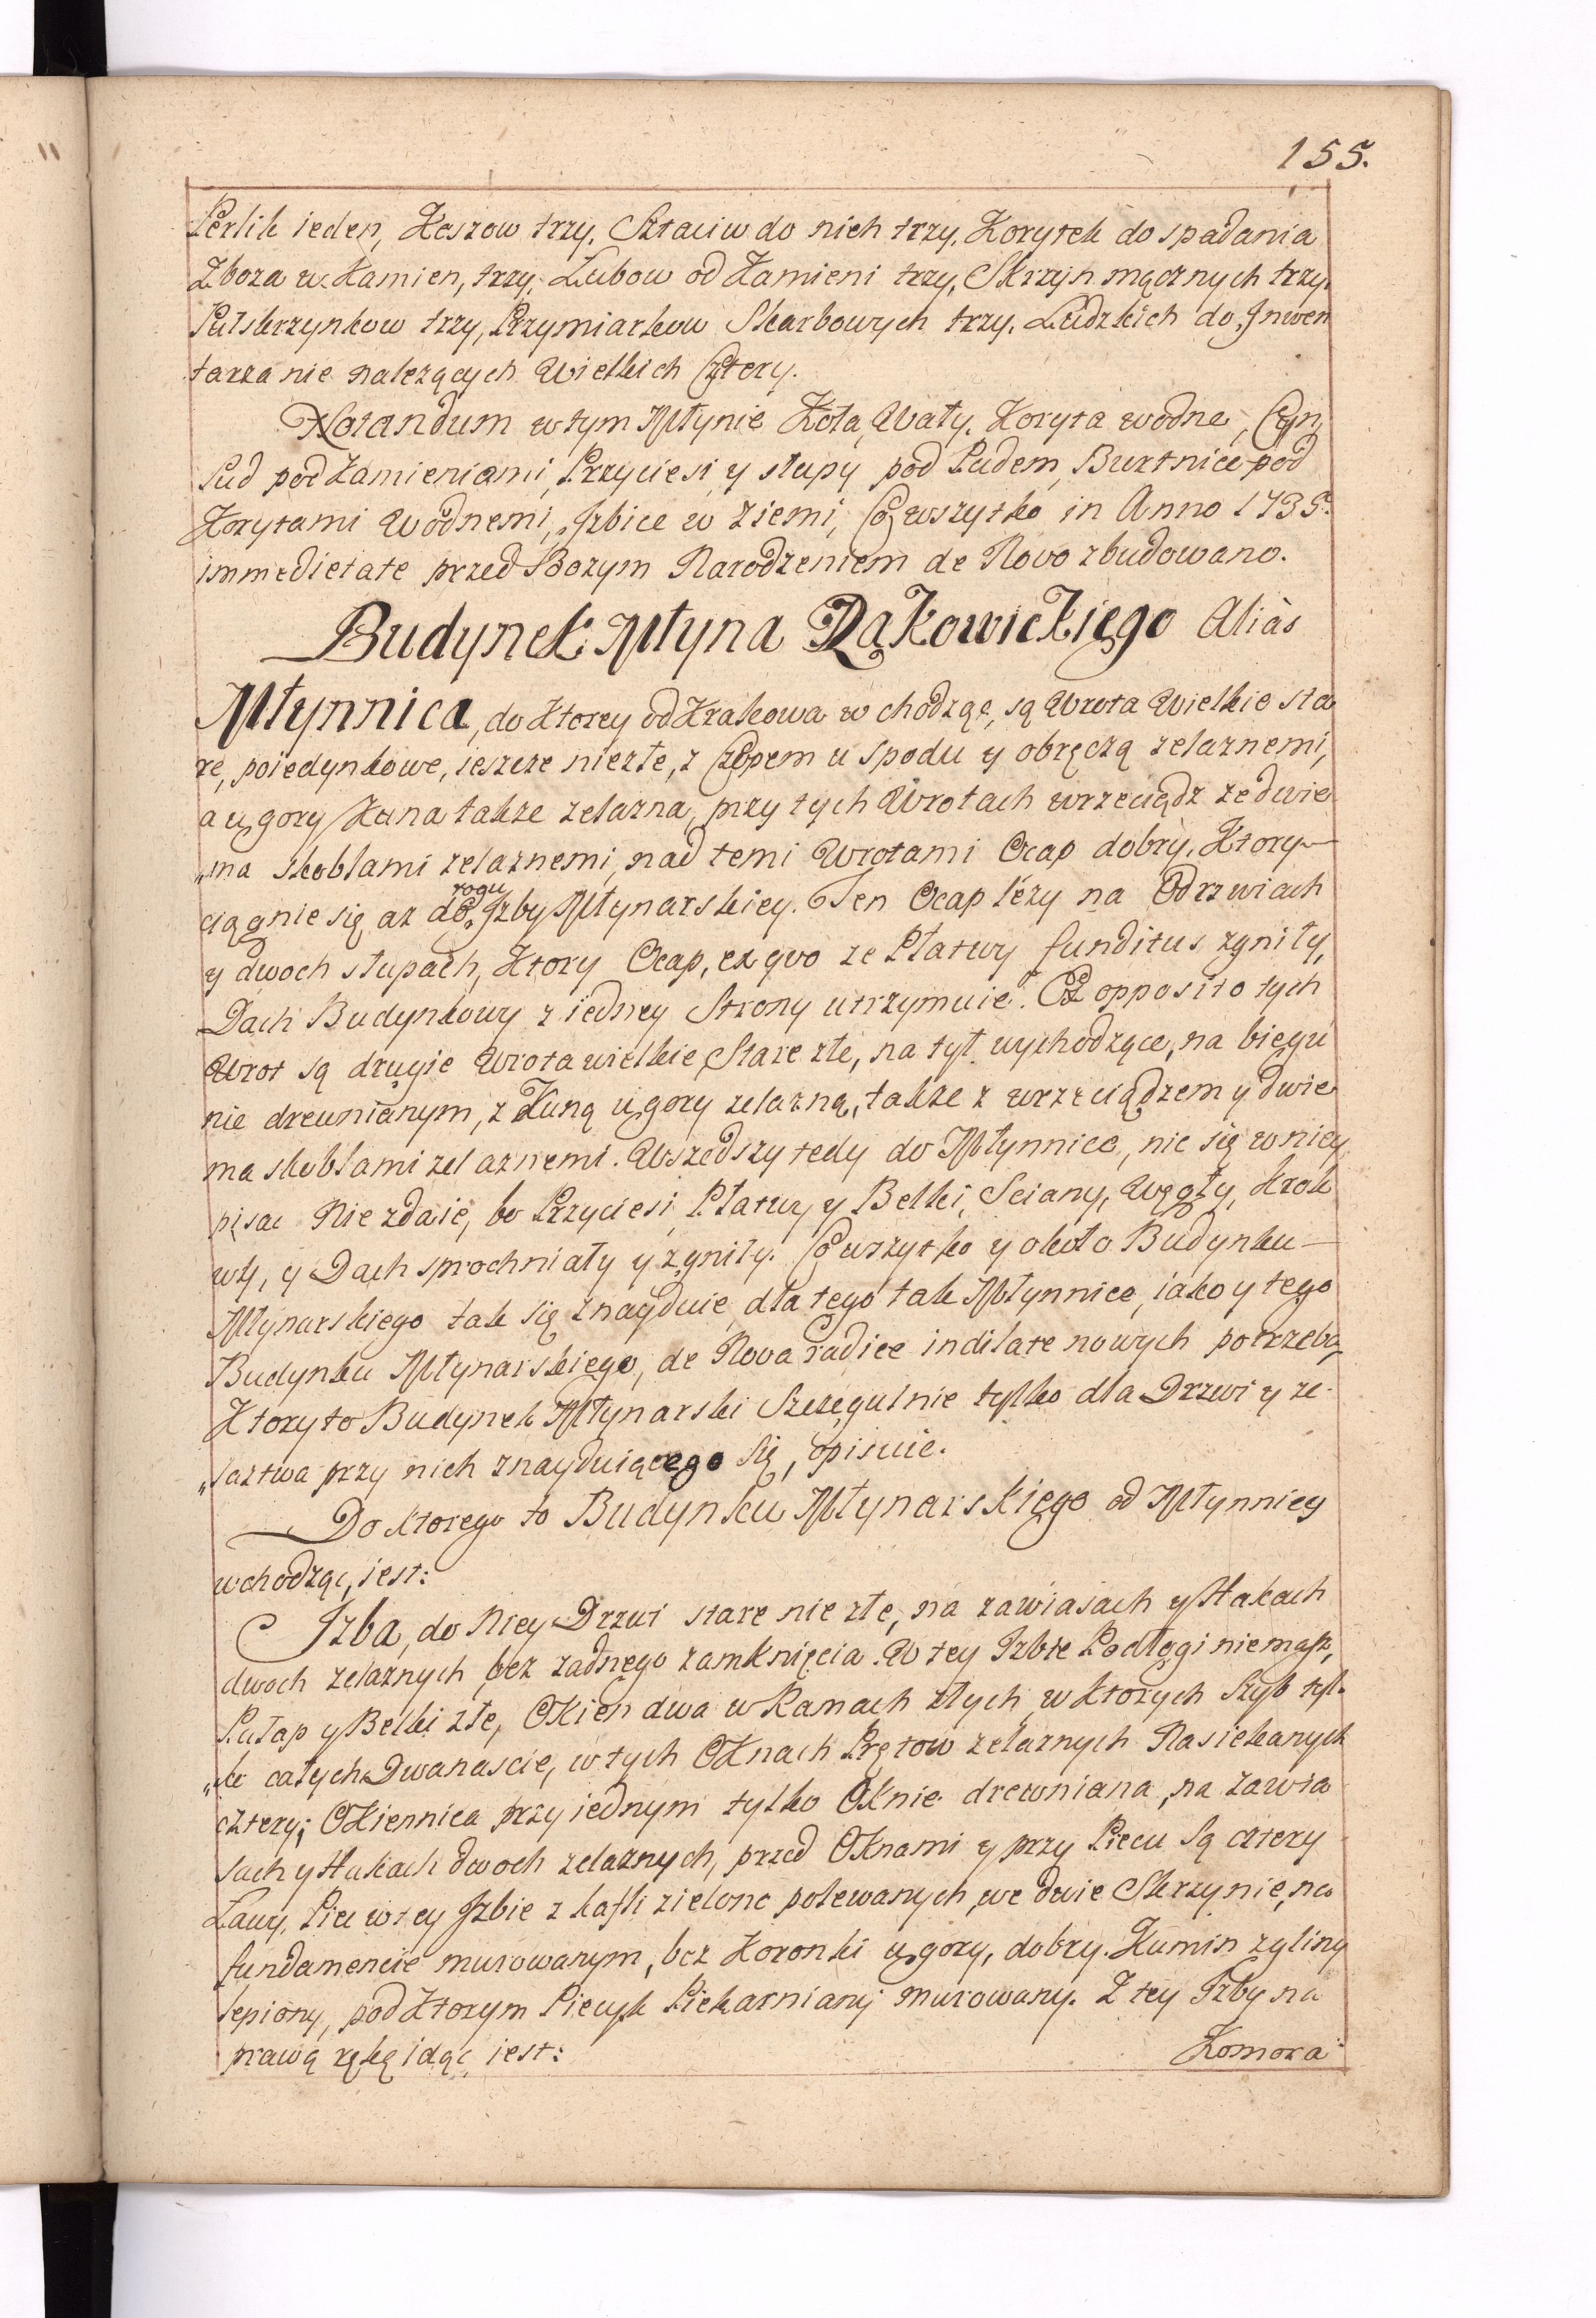 155.
Perlik ieden, Koszow trzy. Sztaciw do nich trzy, Korytek do spadania
Zboza w Kamien, trzy, Łubow od Kamieni trzy, Skrzyn mącznych trzy,
Pułskrzynkow trzy, Przymiarkow Skarbowych trzy. Ludzkich do Jnwen
tarza nie nalezących Wielkich Cztery.
Notandum w tym Młynie Koła, Wały, Koryta wodne, Czyn,
Pud pod Kamieniami, Przyciesi y słupy pod Pudem, Burtnice pod
Korytami Wodnemi, Jzbice w ziemi, Co wszytko in Anno 1735.
immedietate przed Bozym Narodzeniem de Novo zbudowano.
Budynek Młyna Rąkowickiego Aliàs
Młynnica, do Ktorey od Krakowa wchodząc, są Wrota Wielkie sta
re, poiedynkowe, ieszcze niezłe, z Czopem u spodu y obręczą zelaznemi,
a u gory Kuna takze zelazna, przy tych Wrotach wrzeciądz ze dwie
„ma skoblami zelaznemi, nad temi Wrotami Ocap dobry, Ktory
ciągnie się az do rogu Jzby Młynarskiey. Ten Ocap lezy na Odrzwiach
y dwoch słupach, Ktory Ocap, ex quo ze Płatwy funditus zgniły,
Dach Budynkowy z iedney Strony utrzymuie. Ex opposito tych
Wrot są drugie Wrota wielkie Stare złe, na tył wychodzące, na biegu
nie drewnianym, z Kuną u gory zelazną, takze z wrzeciądzem y dwie
ma skoblami zelaznemi. Wszedszy tedy do Młynnice, nic się w niey
pisac Nie zdaie, bo Przyciesi, Płatwy y Belki, Sciany, Węgły, Krok
wy, y Dach sprochniały y zgniły. Co wszytko y około Budynku
Młynarskiego tak się znayduie, dla tego tak Młynnice, iako y tego
Budynku Młynarskiego, de Nova radice indilate nowych potrzeba,
Ktory to Budynek Młynarski Szczegulnie tylko dla Drzwi y ze
„laztwa przy nich znayduiącego Się, opisuie.
Do Ktorego to Budynku Młynarskiego od Młynnicy
wchodząc, iest:
Jzba, do Niey Drzwi stare nie złe, na zawiasach y Hakach
dwoch zelaznych bez zadnego zamknięcia. W tey Jzbie Podłogi niemasz,
Pułap y Belki złe, Okien dwa w Ramach złych, w Ktorych Szyb tyl
„ko całych Dwanascie, w tych Oknach Prętow zelaznych Nasiekanych
cztery; Okiennica przy iednym tylko Oknie drewniana, na zawia
sach y Hakach dwoch zelaznych, przed Oknami y przy Piecu Są cztery
Ławy. Piec w tey Jzbie z kafli zielono polewanych, we dwie Skrzynie, na
fundamencie murowanym, bez Koronki u gory, dobry. Kumin z gliny
lepiony, pod Ktorym Piecyk Piekarniany murowany. Z tey Jzby na
prawą rękę idąc iest:
Komora